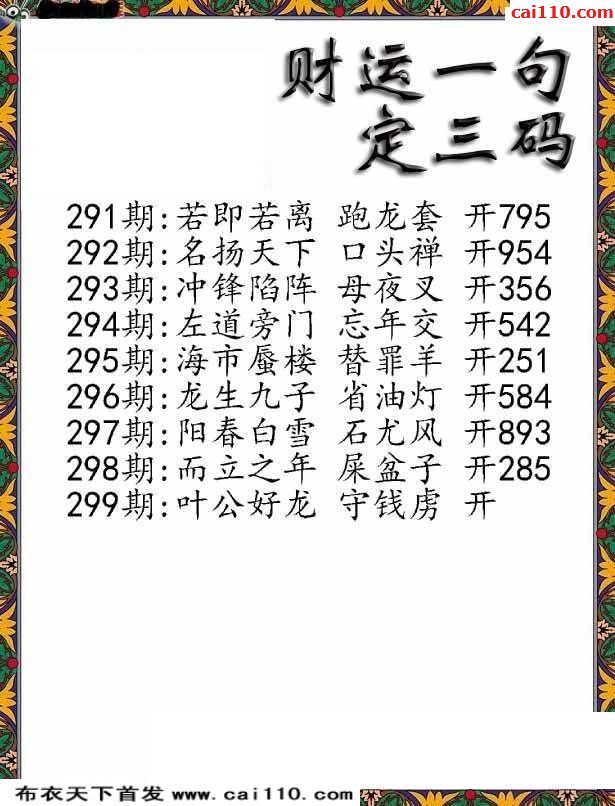 cai110.com
财运一句
定三码
291期:若即若离 跑龙套 开795
292期:名扬天下 口头禅 开954
293期:冲锋陷阵 母夜叉 开356
294期:左道旁门 忘年交 开542
295期:海市蜃楼 替罪羊 开251
296期:龙生九子 省油灯 开584
297期:阳春白雪 石尤风 开893
298期:而立之年 屎盆子 开285
299期:叶公好龙 守钱虏 开
布衣天下首发 www.cai110.com